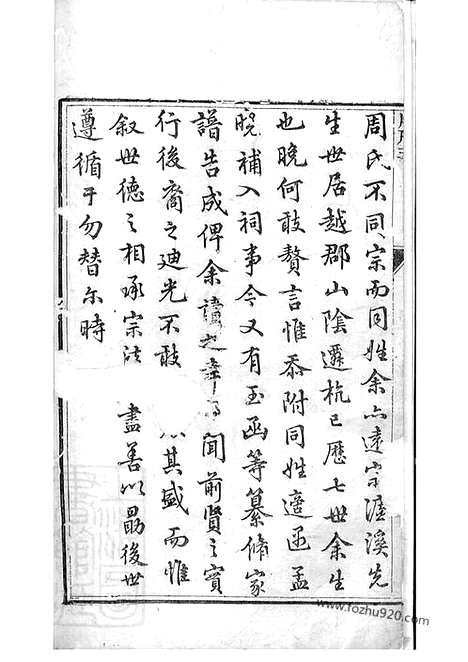 周氏不同宗而同姓余亦遠宗濂溪先
生世居越郡山陰遷杭已歷七世余生
也晚何敢贅言惟忝附同姓適逢孟
晚補入祠事今又有玉函等纂脩家
譜告成俾余讀之聞前賢之實
行後裔之迪光不敢其盛而惟
叙世德之相承宗法盡善以勗後世
遵循于勿替尔時
www.fozhu920.com